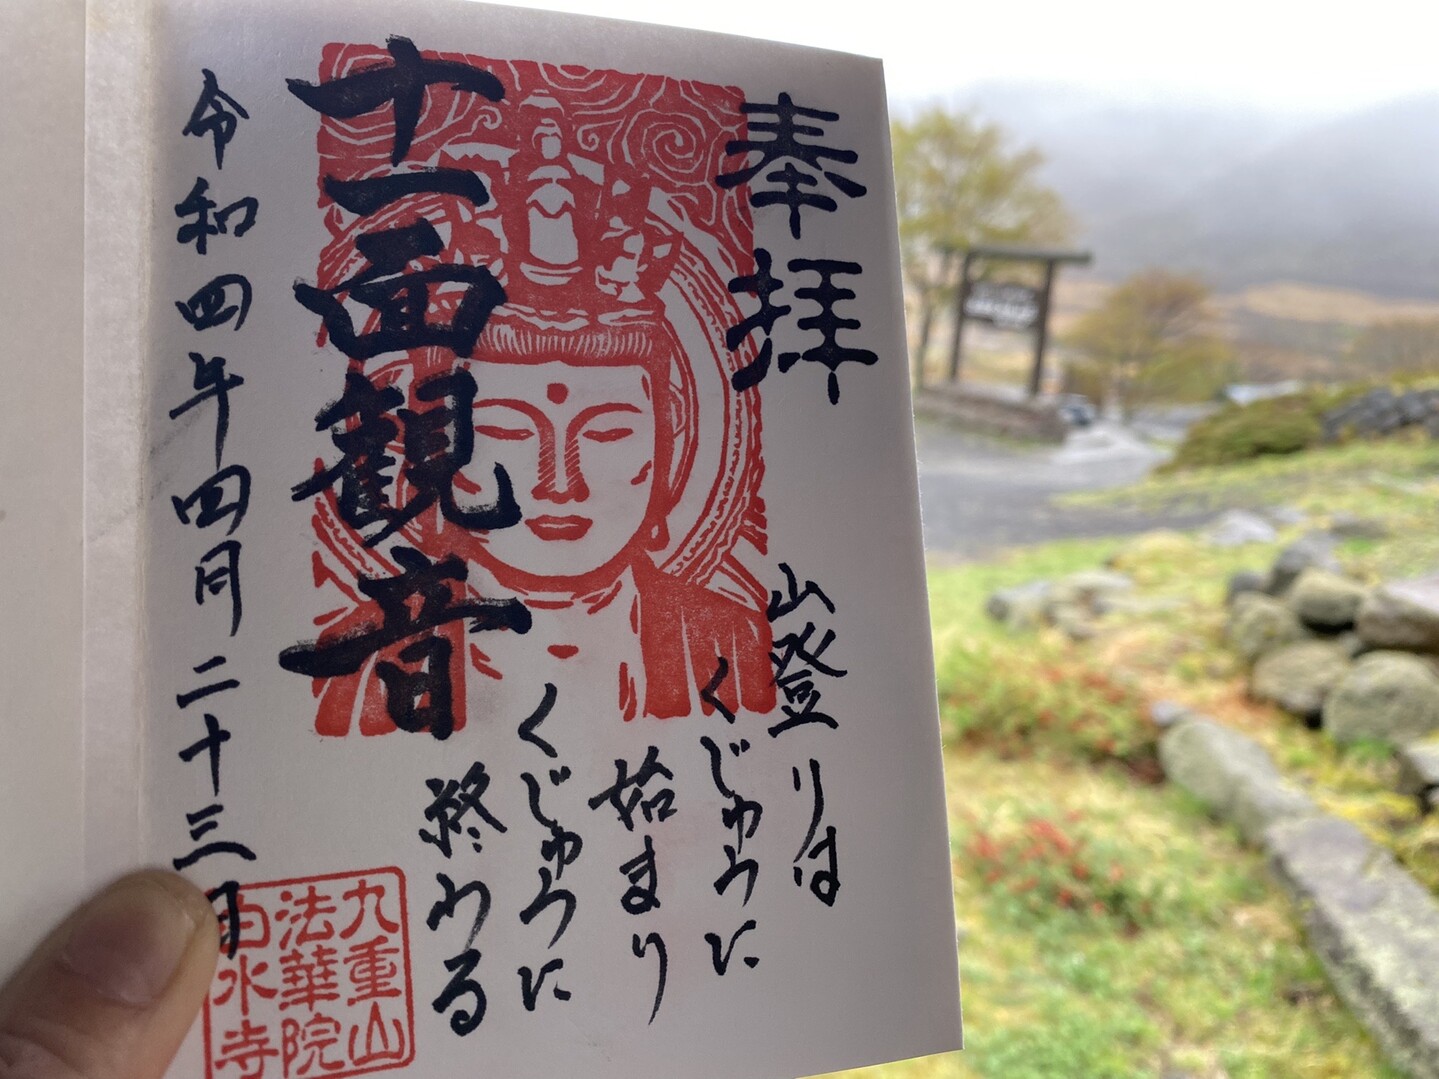 奉拝
山登りは
くじゅうに
始まり
くじゅうに
終わる
十一面観音
令和四年四月二十三日
九重山
法華院
白水寺